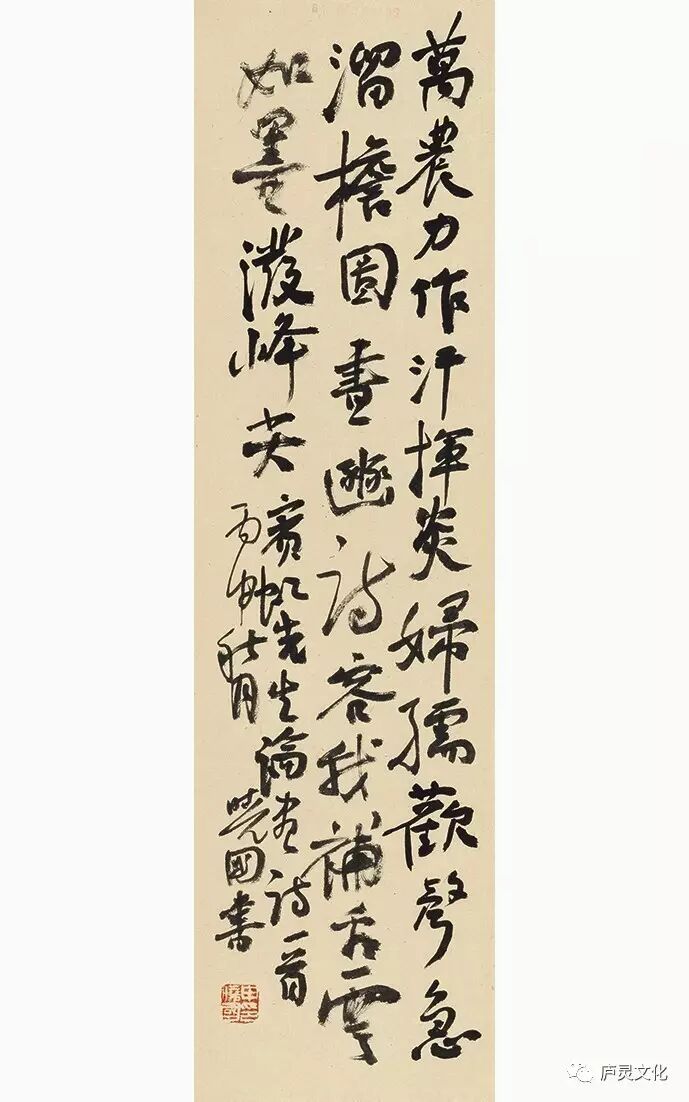 萬農力作汗揮炎婦孺歡聲急
溜檐圖畫豳詩容我補舌雲
如墨潑峰尖
賓虹先生論畫詩一首
丙申秋月
曉國書
庐灵文化